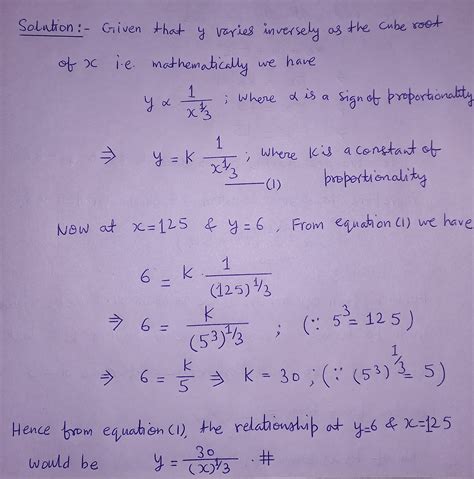 Solution:- Given that y varies inversely as the cube root
of x i.e. mathematically we have
y ∝ 1/x^1/3 ; where ∝ is a sign of proportionality
⇒ y = K 1/x^1/3 ; where K is a constant of
—(1) proportionality
Now at x=125 & y=6, From equation (1) we have
6 = K · 1/(125)^1/3
⇒ 6 = K/(5^3)^1/3 ; (∵ 5^3 = 125)
⇒ 6 = K/5 ⇒ K = 30 ; (∵ (5^3)^1/3 = 5)
Hence from equation (1), the relationship at y=6 & x=125
would be y = 30/(x)^1/3 . #